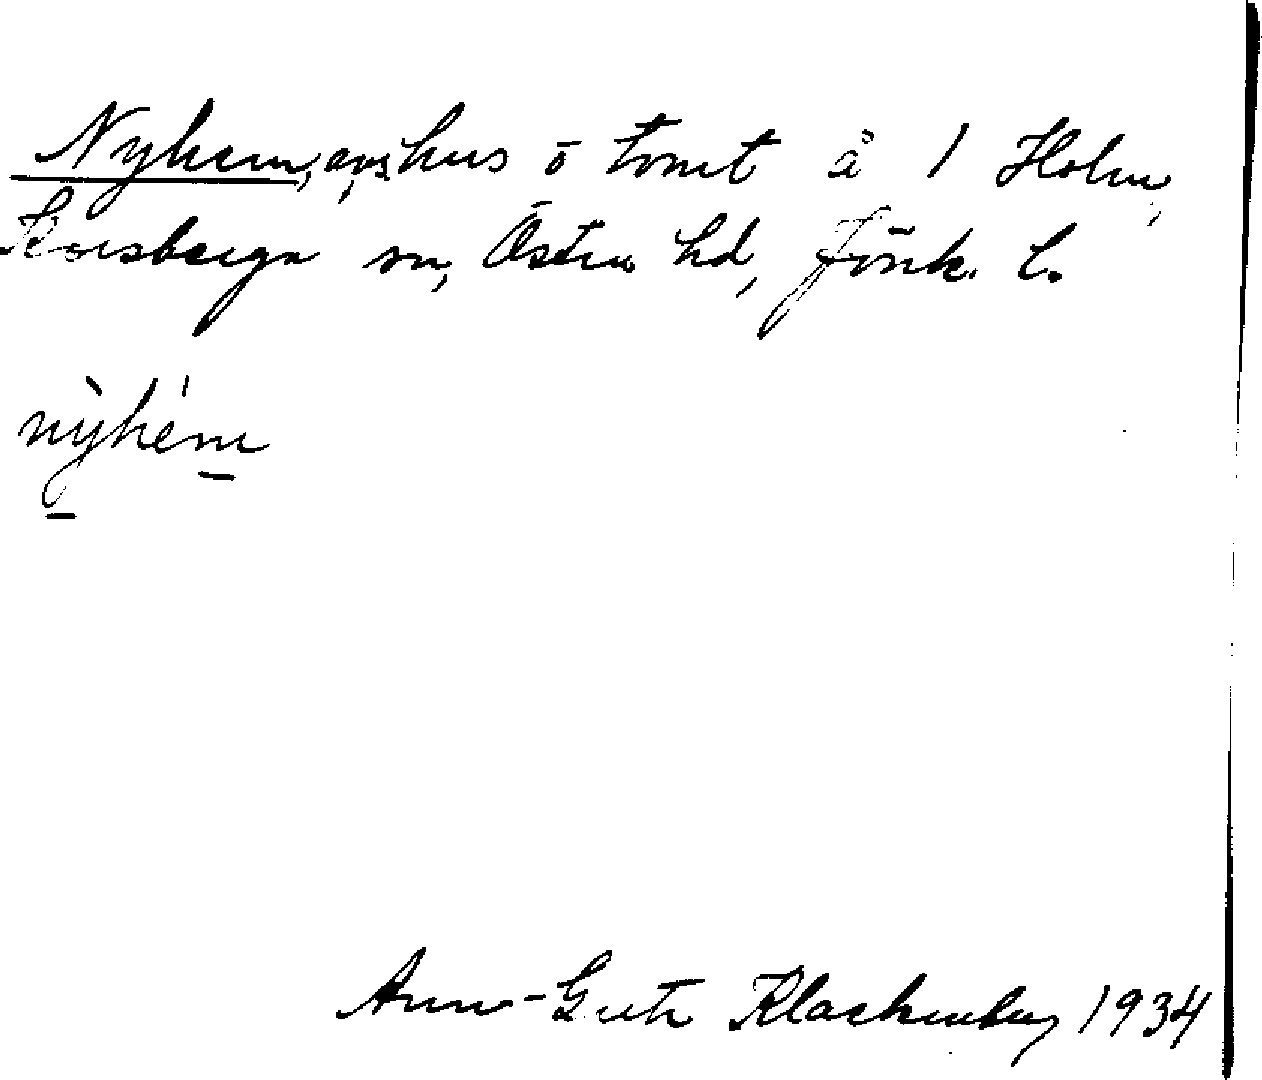 Nyhem, avs, hus o tomt å 1 Holm,
Korsberga sn, Östra hd, Jönk. l.
nỳhém
Anna-Greta Klackenberg 1934